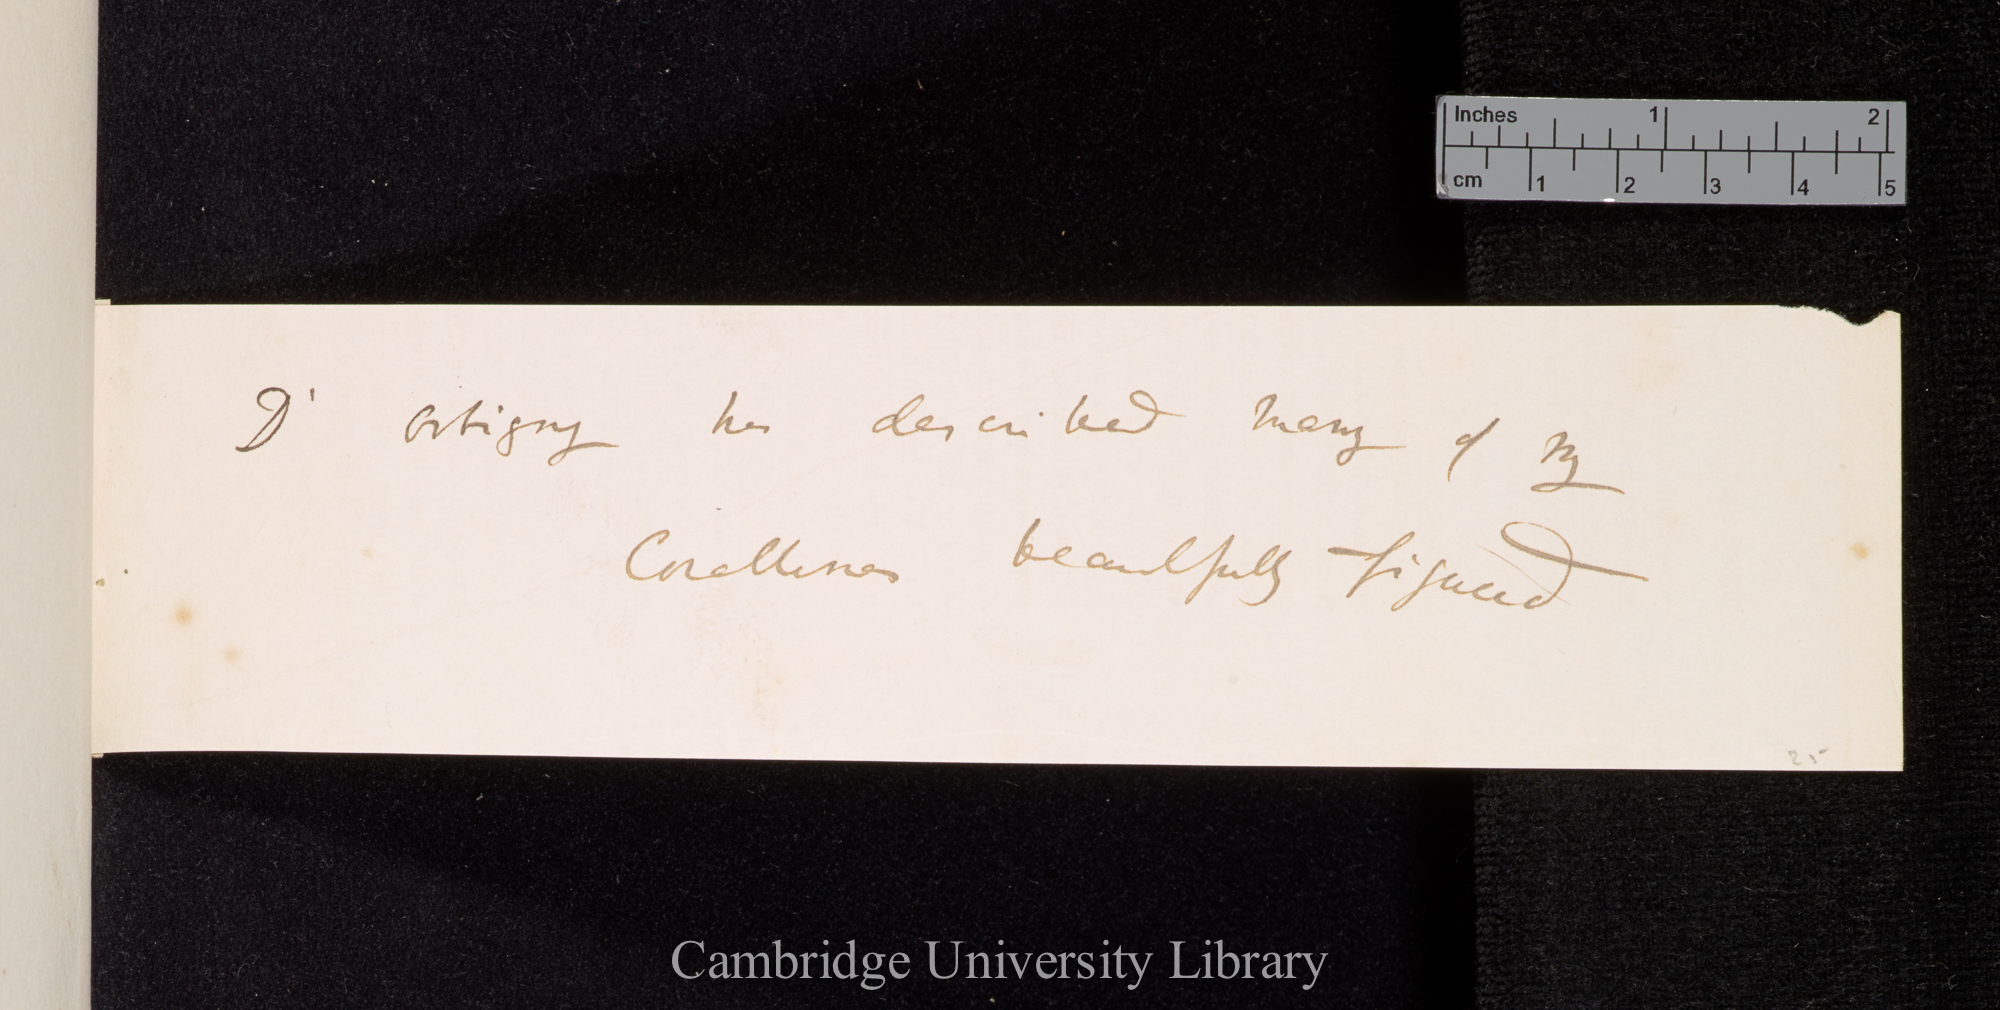 Inches 1 2
cm 1 2 3 4 5
D' orbigny has described many of my
Corallines beautifully figured
25
Cambridge University Library